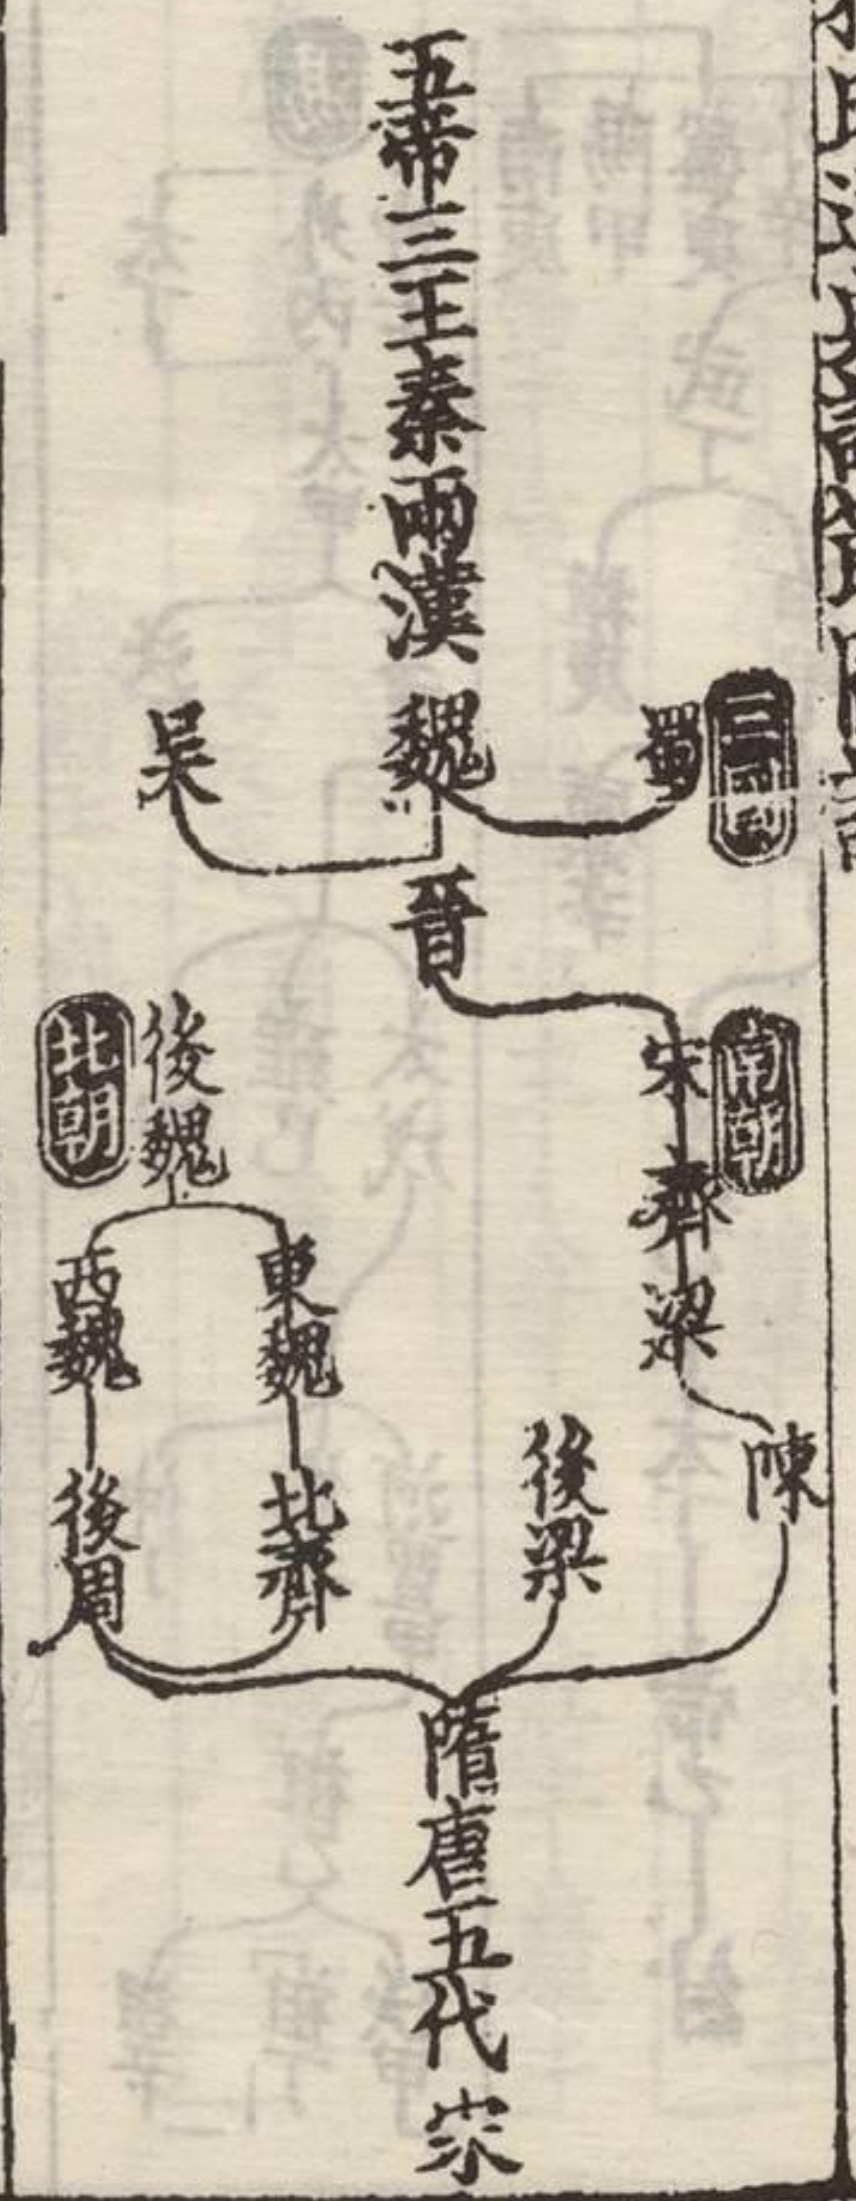 五帝三王秦兩漢
三國
蜀
魏
吴
晉
南朝
宋齊梁
陳
後梁
北朝
後魏
東魏
北齊
西魏
後周
隋唐五代宋